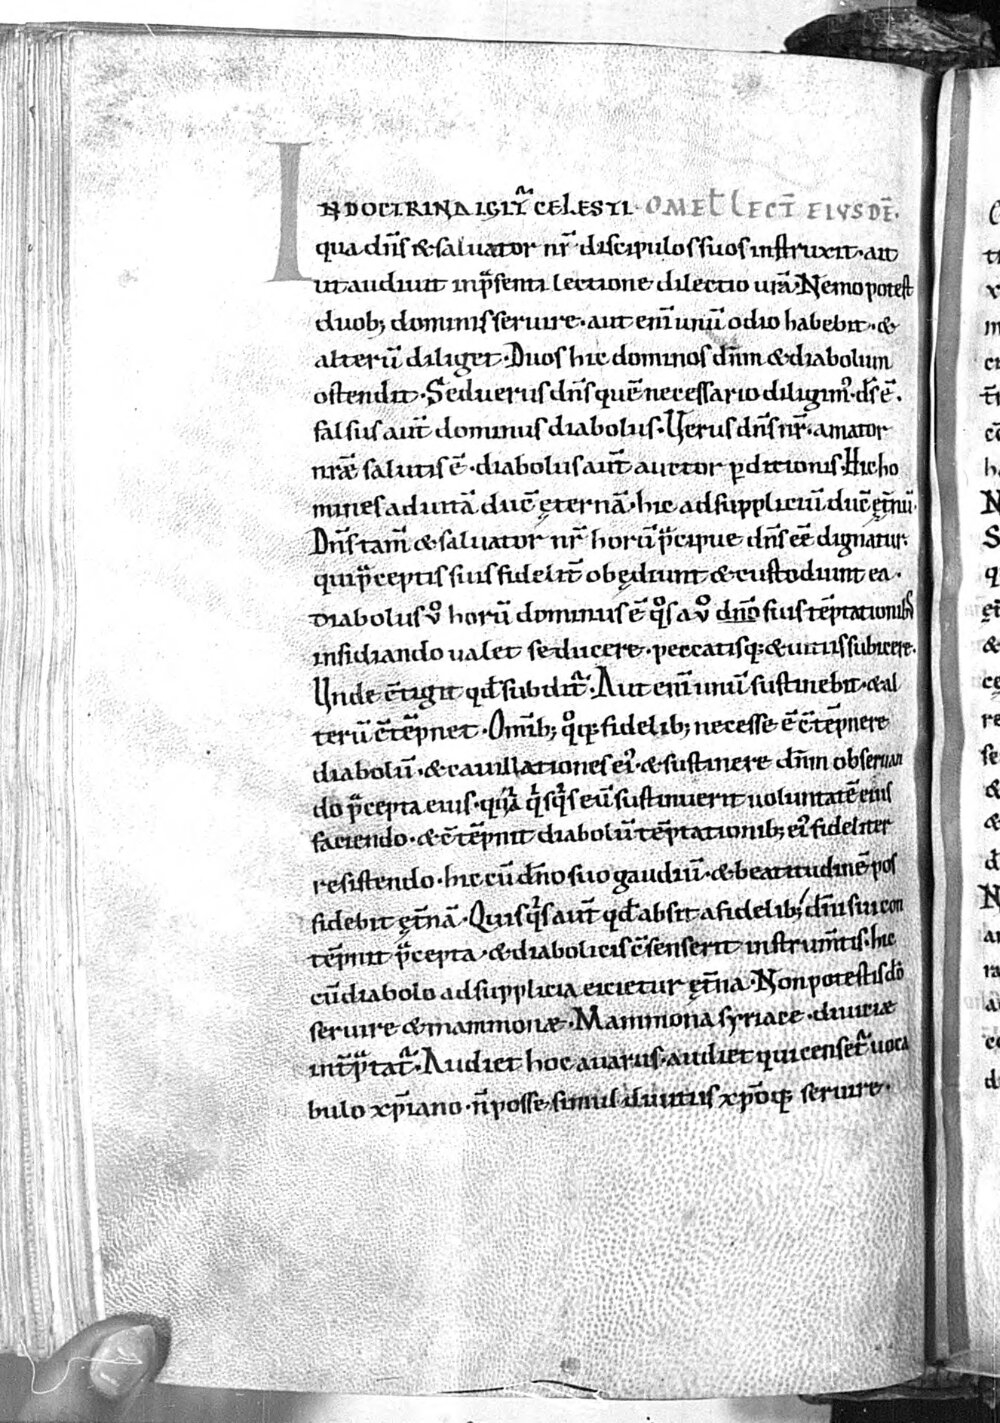 IN DOCTRINA IGIT᷑ CELESTI· OMEL̄ LECT̄ EIVSDĒ.
qua dn̄s & saluator nr̄ discipulos suos instruxit· aut
ut audiuit in p̄senti lectione dilectio ur̄a· Nemo potest
duob; dominis seruire· aut eni᷑ unū odio habebit· &
alterū diliget· Duos hic dominos dn̄m & diabolum
ostendit· Sed uerus dn̄s quē necessario diligim᷒· ds̄ ē.
falsus aut̄ dominus diabolus· Verus dn̄s nr̄· amator
nr̄æ salutis ē· diabolus aut̄ auctor ꝑditionis· Hic ho
mines ad uitā duc̄ ęternā· hic ad suppliciū duc̄ ęt̄nū·
Dn̄s tam̄ & saluator nr̄ horū p̄cipue dn̄s eē dignatur·
qui p̄ceptis suis fidelit̄ obędiunt & custodiunt ea·
Diabolus v̊ horū dominus ē qͦs a v̊ dn̄o suis tēptationib᷒
insidiando ualet seducere· peccatisq; & uitiis subicere·
Vnde c̄tigit qd̄ subdit᷑· Aut eni᷑ unū sustinebit· & al
terū c̄tēpnet· Om̄ib; qͦq; fidelib; necesse ē c̄tēpnere
diabolū· & cauillationes ei᷒· & sustinere dn̄m obseruan
do p̄cepta eius· quia qͥsqͥs eū sustinuerit uoluntatē eius
faciendo· & c̄tēpnit diabolū tēptationib; ei᷒ fideliter
resistendo· hic cū dn̄o suo gaudiū· & beatitudinē pos
sidebit ęt̄nā· Quisqͥs aut̄ qd̄ absit a fidelib; dn̄i sui con
tēpnit p̄cepta· & diabolicis c̄senserit instrum̄tis· hic
cū diabolo ad supplicia eicietur ęt̄na· Non potestis dō
seruire & mammonæ· Mammona syriace· diuiciæ
int̄p̄tat᷑· Audiet hoc auarus· audiet qui censet᷑ uoca
bulo xp̄iano· n̄ posse simul diuitiis xp̄oq; seruire·